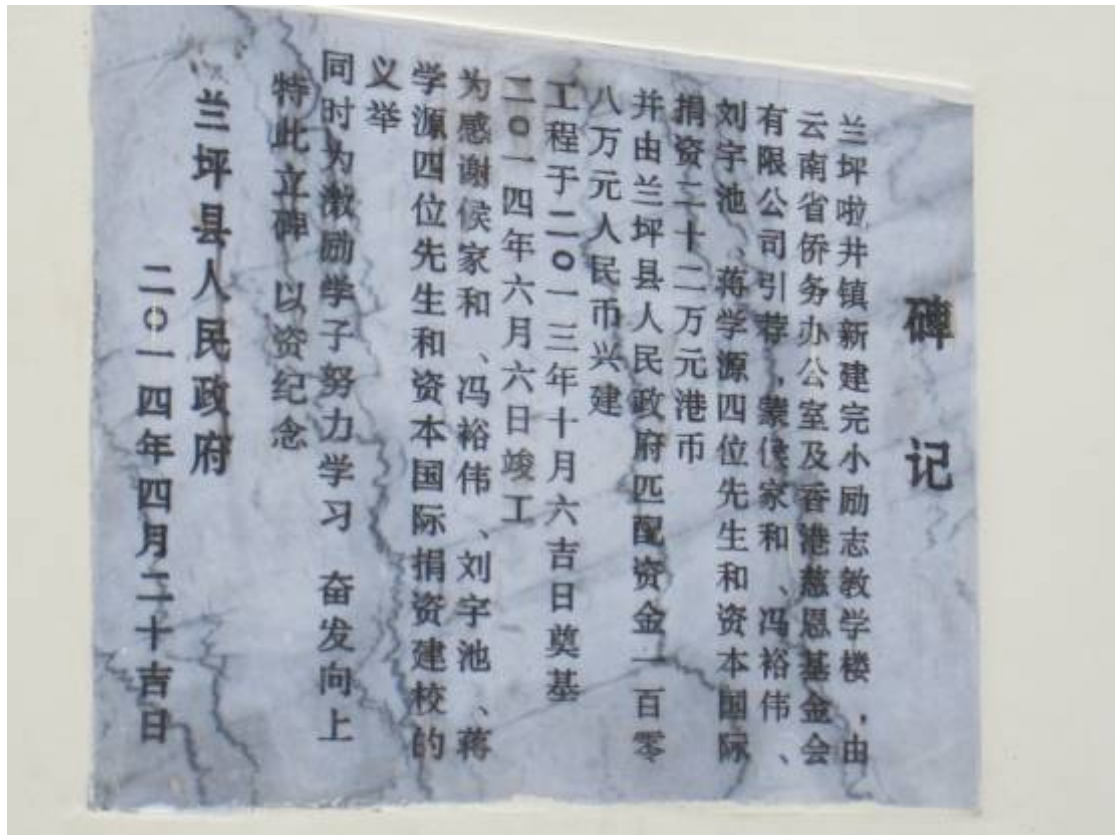 碑记
兰坪啦井镇新建完小励志教学楼，由
云南省侨务办公室及香港慈恩基金会
有限公司引荐，蒙侯家和、冯裕伟、
刘宇池、蒋学源四位先生和资本国际
捐资二十二万元港币
并由兰坪县人民政府匹配资金一百零
八万元人民币兴建
工程于二〇一三年十月六吉日奠基
二〇一四年六月六日竣工
为感谢侯家和、冯裕伟、刘宇池、蒋
学源四位先生和资本国际捐资建校的
义举
同时为激励学子努力学习 奋发向上
特此立碑 以资纪念
兰坪县人民政府
二〇一四年四月二十吉日